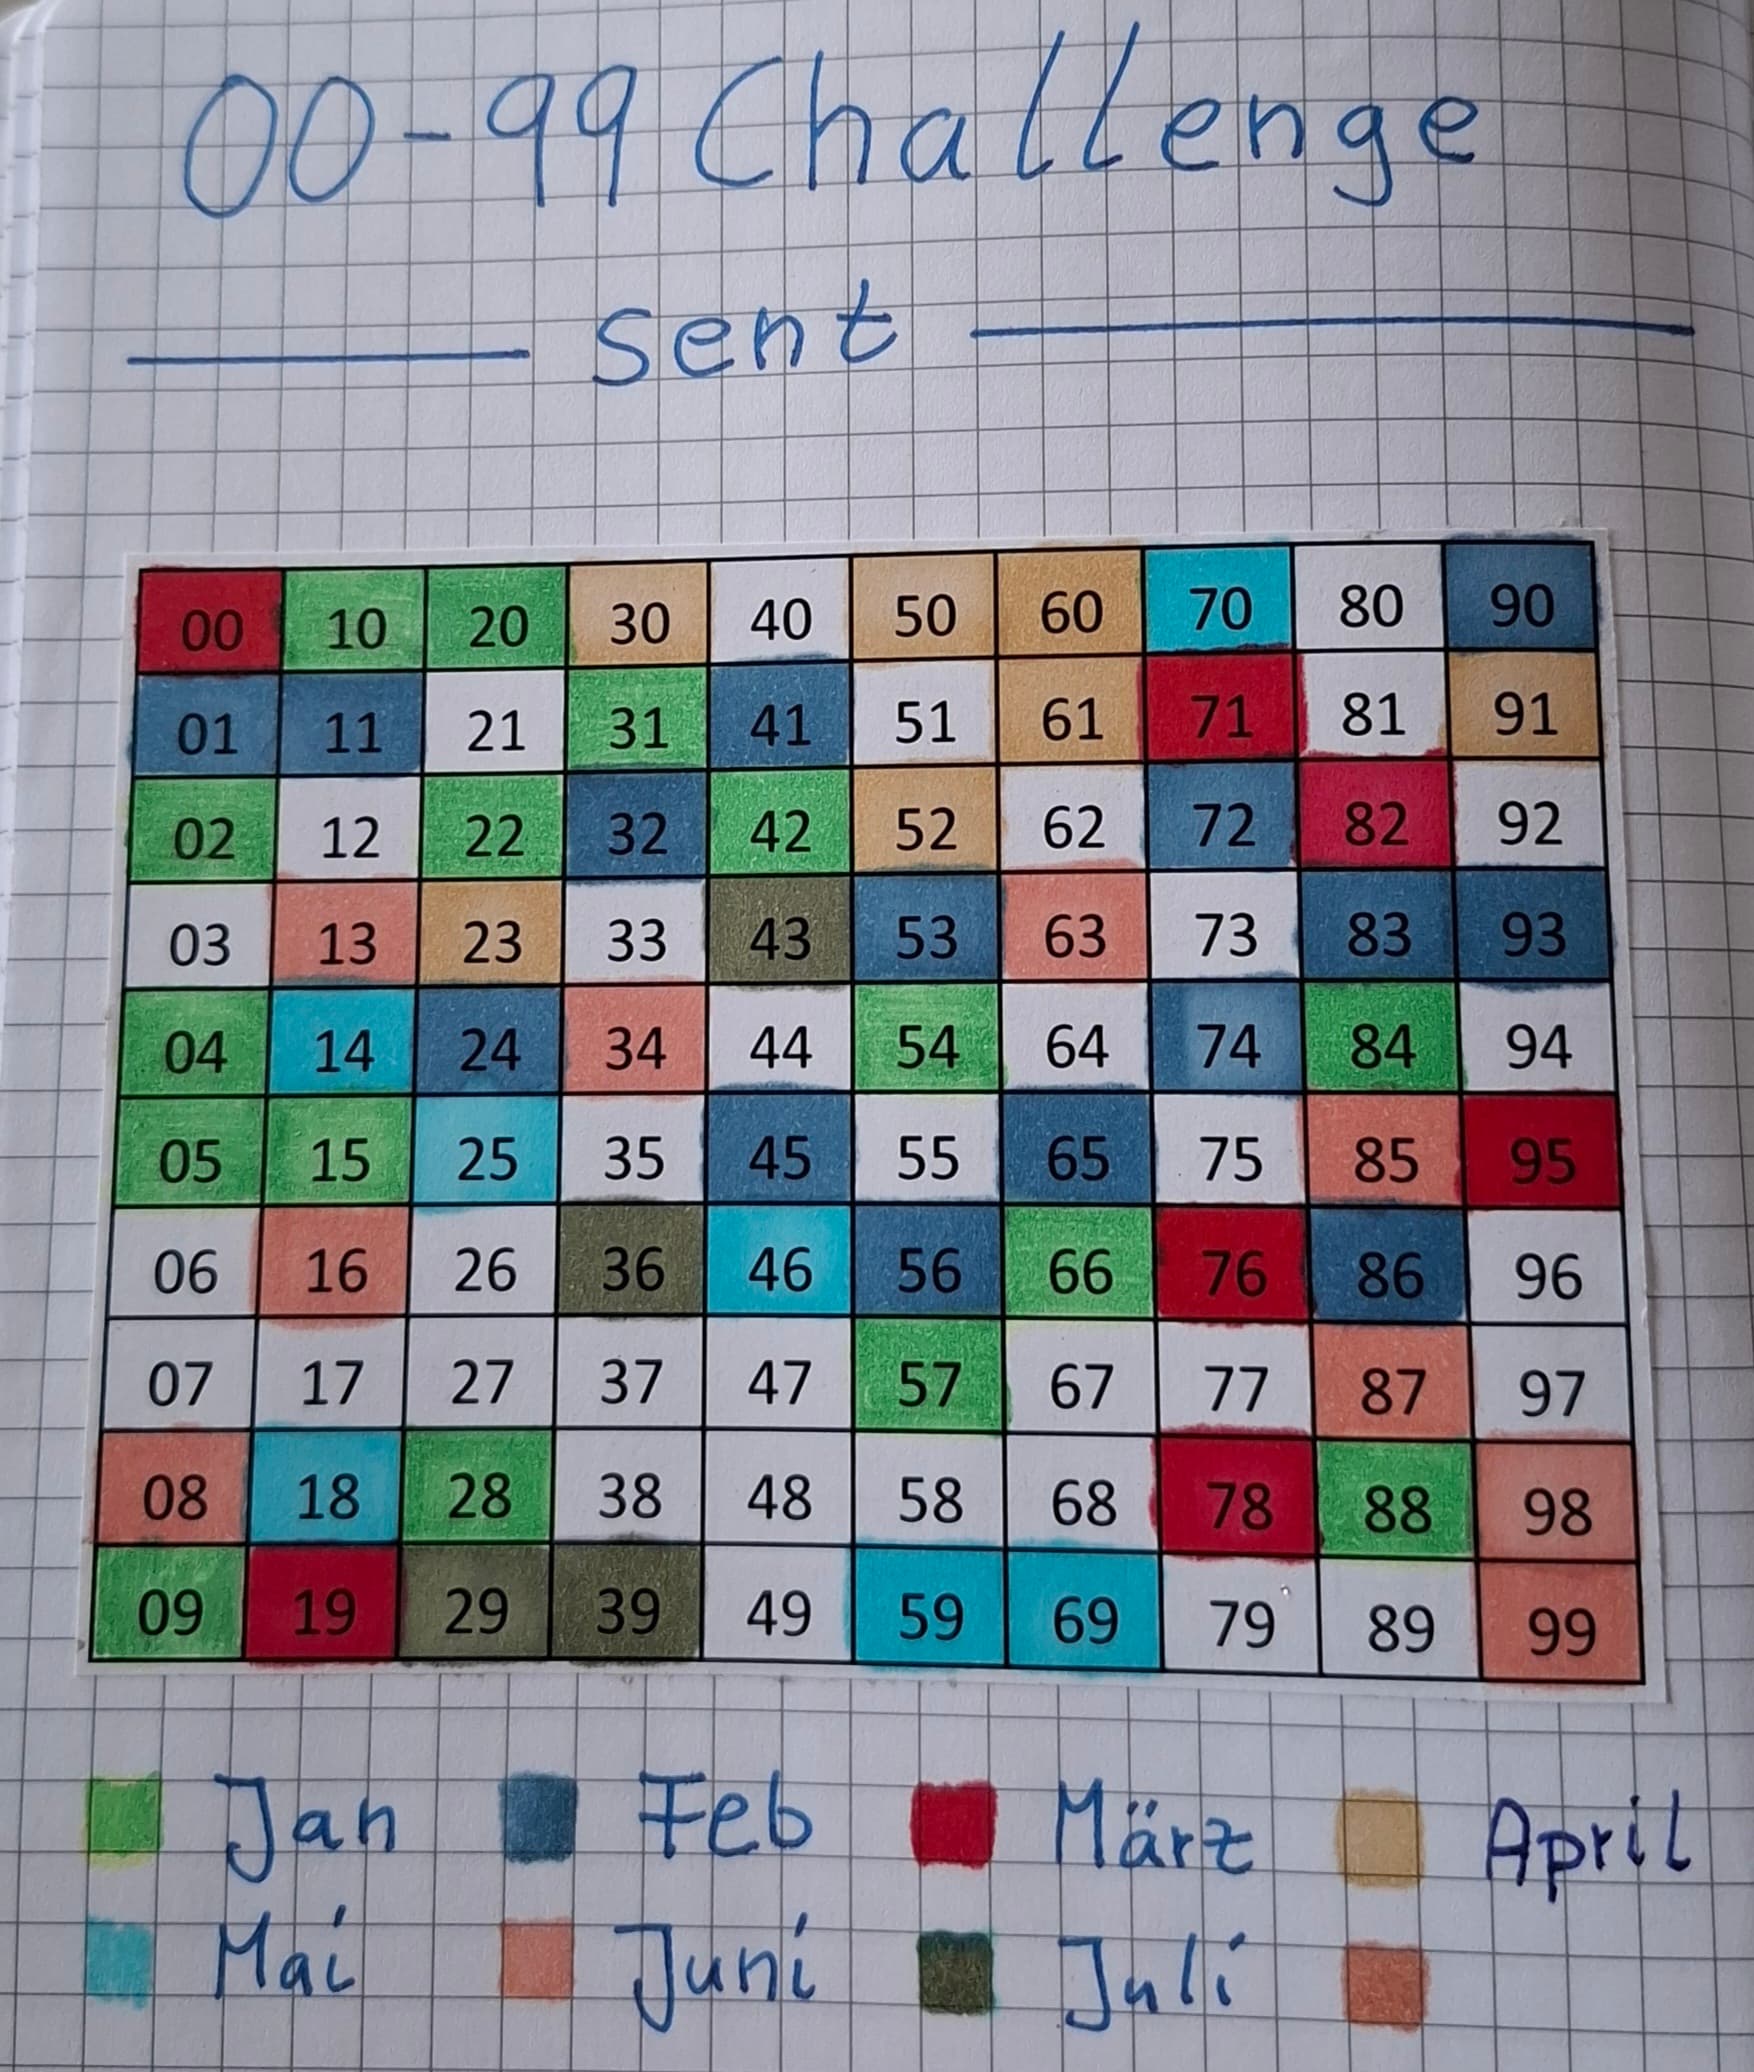 00-99 Challenge
sent
00 10 20 30 40 50 60 70 80 90
01 11 21 31 41 51 61 71 81 91
02 12 22 32 42 52 62 72 82 92
03 13 23 33 43 53 63 73 83 93
04 14 24 34 44 54 64 74 84 94
05 15 25 35 45 55 65 75 85 95
06 16 26 36 46 56 66 76 86 96
07 17 27 37 47 57 67 77 87 97
08 18 28 38 48 58 68 78 88 98
09 19 29 39 49 59 69 79 89 99
Jan Feb März April
Mai Juni Juli